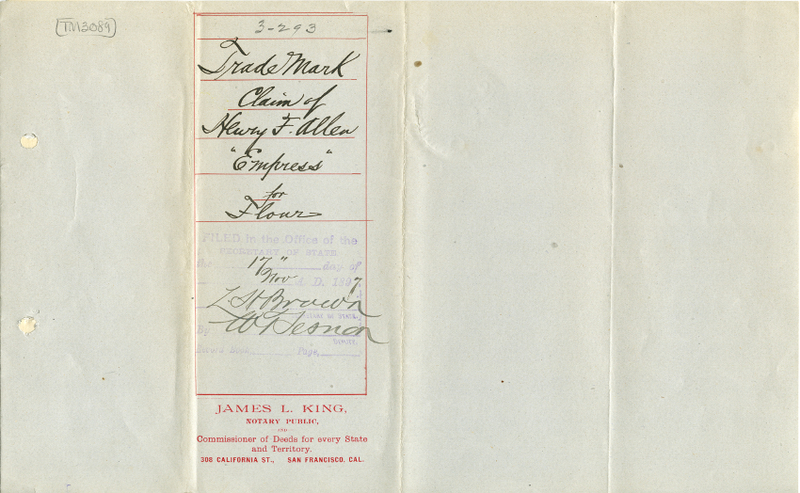 TM3089
3-293
Trade Mark
Claim of
Henry F. Allen
"Empress"
for
Flour
FILED in the Office of the
SECRETARY OF STATE
the 17" day of
Nov A. D. 1897
L. H. Brown
By
Record Book Page
JAMES L. KING,
NOTARY PUBLIC,
AND
Commissioner of Deeds for every State
and Territory.
308 CALIFORNIA ST., SAN FRANCISCO, CAL.